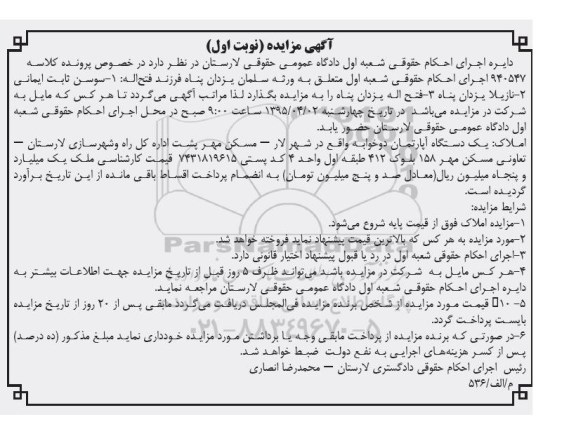 آگهی مزایده (نوبت اول)
دایره اجرای احکام حقوقی شعبه اول دادگاه عمومی حقوقی لارستان در نظر دارد در خصوص پرونده کلاسه
۹۴۰۵۴۷ اجرای احکام حقوقی شعبه اول متعلق به ورثه سلمان یزدان پناه فرزند فتح‌اله: ۱-سوسن ثابت ایمانی
۲-نازیلا یزدان پناه ۳-فتح اله یزدان پناه را به مزایده بگذارد لذا مراتب آگهی می‌گردد تا هر کس که مایل به
شرکت در مزایده می‌باشد در تاریخ چهارشنبه ۱۳۹۵/۰۴/۰۲ ساعت ۹:۰۰ صبح در محل اجرای احکام حقوقی شعبه
اول دادگاه عمومی حقوقی لارستان حضور یابد.
املاک: یک دستگاه آپارتمان دوخوابه واقع در شهر لار – مسکن مهر پشت اداره کل راه وشهرسازی لارستان –
تعاونی مسکن مهر ۱۵۸ بلوک ۴۱۲ طبقه اول واحد ۴ کد پستی ۷۴۳۱۸۱۹۶۱۵ قیمت کارشناسی ملک یک میلیارد
و پنجاه میلیون ریال(معادل صد و پنج میلیون تومان) به انضمام پرداخت اقساط باقی مانده از این تاریخ برآورد
گردیده است.
شرایط مزایده:
۱-مزایده املاک فوق از قیمت پایه شروع می‌شود.
۲-مورد مزایده به هر کس که بالاترین قیمت پیشنهاد نماید فروخته خواهد شد.
۳-اجرای احکام حقوقی شعبه اول در رد یا قبول پیشنهاد اختیار قانونی دارد.
۴-هر کس مایل به شرکت در مزایده باشد می‌تواند ظرف ۵ روز قبل از تاریخ مزایده جهت اطلاعات بیشتر به
دایره اجرای احکام حقوقی شعبه اول دادگاه عمومی حقوقی لارستان مراجعه نماید.
۵- ۱۰ قیمت مورد مزایده از شخص برنده مزایده فی‌المجلس دریافت می‌گردد مابقی پس از ۲۰ روز از تاریخ مزایده
بایست پرداخت گردد.
۶-در صورتی که برنده مزایده از پرداخت مابقی وجه یا برداشتن مورد مزایده خودداری نماید مبلغ مذکور (ده درصد)
پس از کسر هزینه‌های اجرایی به نفع دولت ضبط خواهد شد.
رئیس اجرای احکام حقوقی دادگستری لارستان – محمدرضا انصاری
م/الف/۵۳۶
ParsNamadData
۰۲۱-۸۸۳۴۹۶۷۰-۵